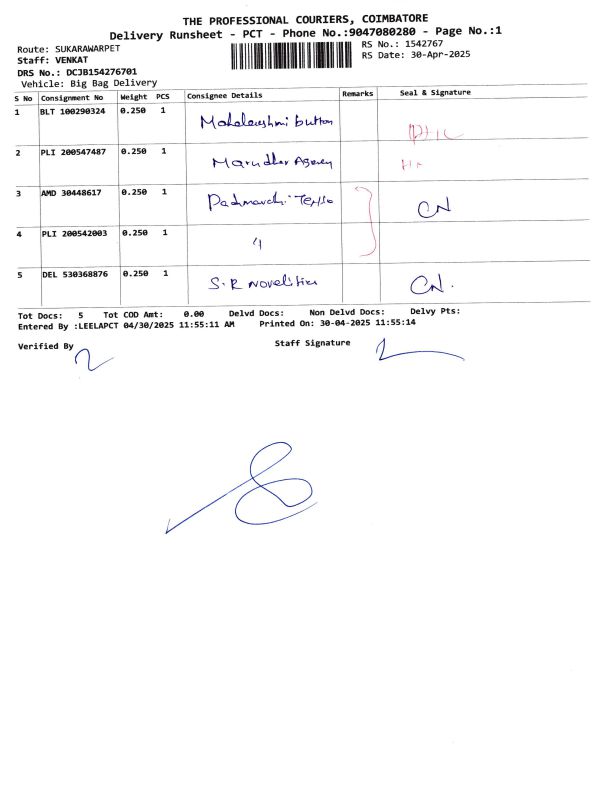 THE PROFESSIONAL COURIERS, COIMBATORE
Delivery Runsheet - PCT - Phone No.:9047080280 - Page No.:1
Route: SUKARAWARPET
RS No.: 1542767
Staff: VENKAT
RS Date: 30-Apr-2025
DRS No.: DCJB154276701
Vehicle: Big Bag Delivery
S No Consignment No Weight PCS Consignee Details Remarks Seal & Signature
1 BLT 100290324 0.250 1 Mahalakshmi button
2 PLI 200547487 0.250 1 Marudhar Agency
3 AMD 30448617 0.250 1 CN
4 PLI 200542003 0.250 1 "
5 DEL 530368876 0.250 1 S.R novelities CN.
Tot Docs: 5 Tot COD Amt: 0.00 Delvd Docs: Non Delvd Docs: Delvy Pts:
Entered By :LEELAPCT 04/30/2025 11:55:11 AM Printed On: 30-04-2025 11:55:14
Verified By Staff Signature